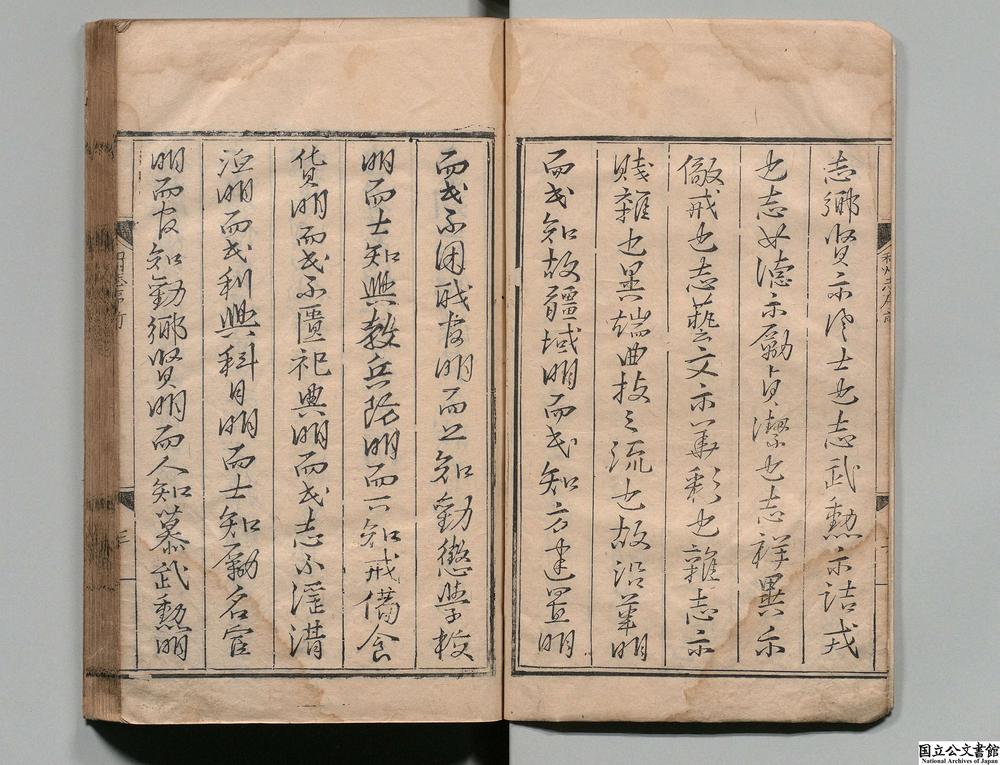 志鄉賢示淑士也志武勳示詰戎
也志女德示勵貞潔也志祥異示
儆戒也志藝文示華彩也雜志示
賤雜也異端曲技之流也故沿革明
而民知故疆域明而民知方建置明
而民不困職官明而上知勸懲學校
明而士知興教兵防明而下知戒備食
貨明而民不匱祀典明而民志不淫潜
明而民利興科目明而士知勵名宦
明而官知勸鄉賢明而人知慕武勳明
国立公文書館
National Archives of Japan